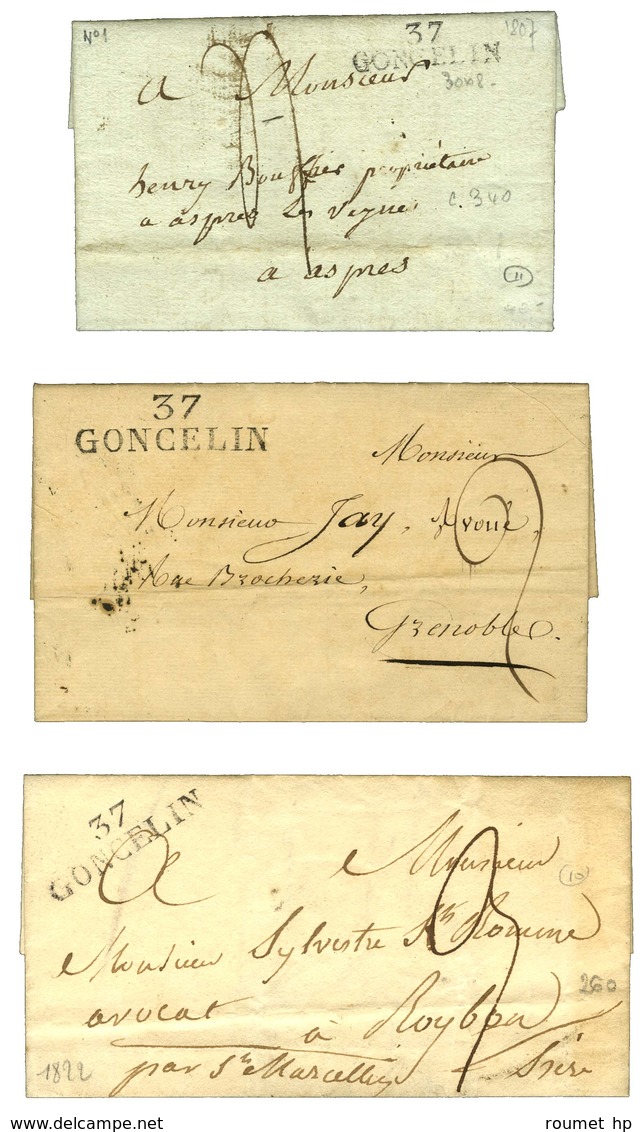 N°1
37
GONCELIN
1807
a Monsieur
henry Bouffier propriétaire
a aspres les veynes
a aspres
c. 340
11
37
GONCELIN
Monsieur
Monsieur Jay, Avoué,
Rue Brocherie,
Grenoble.
37
GONCELIN
A
Monsieur
10
Monsieur Sylvestre St Romme
avocat
260
à Roybon
par St Marcellin
Isère
1822
www.delcampe.net
roumet hp